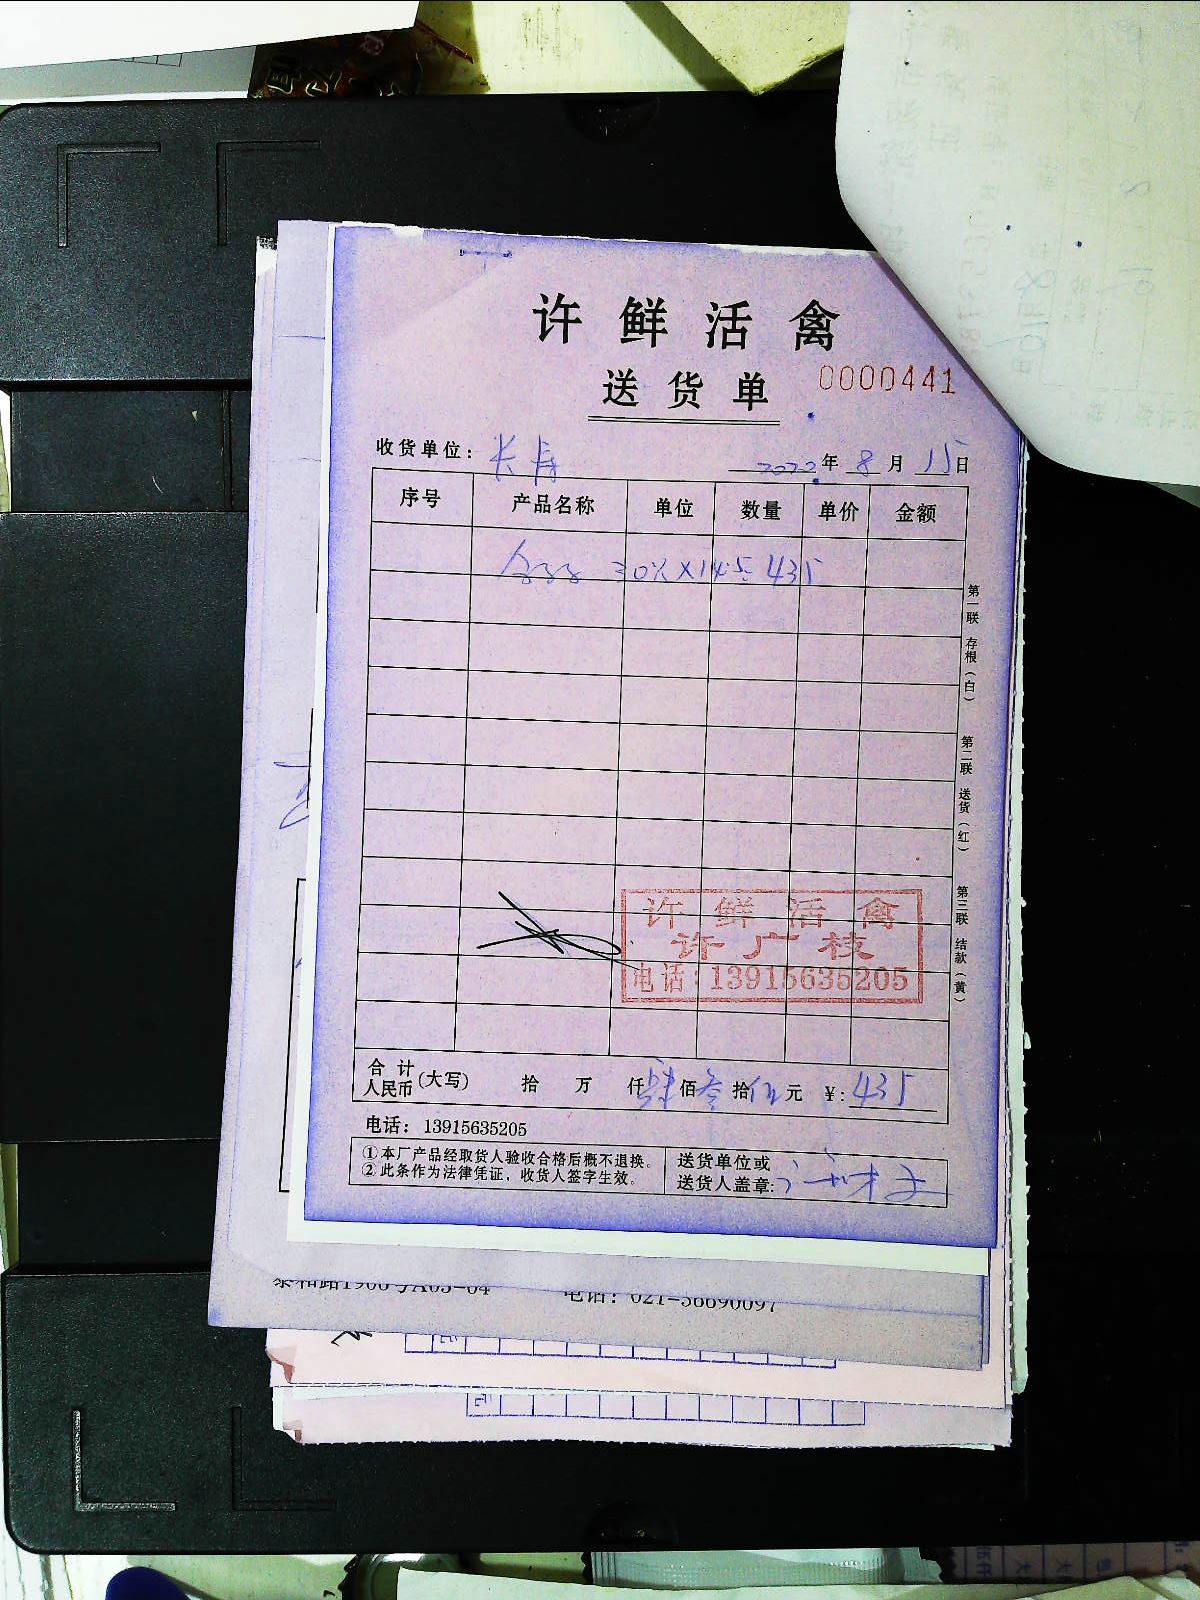 许鲜活禽
送货单 0000441
收货单位: 长寿 2022年 8月 15日
序号 产品名称 单位 数量 单价 金额
30 X 14.5 435
第一联 存根（白）
第二联 送货（红）
第三联 结款（黄）
许鲜活禽
许广枝
电话:13915635205
合计人民币(大写) 拾 万 仟 肆佰 叁拾 伍元 ¥: 435
电话: 13915635205
①本厂产品经取货人验收合格后概不退换。
②此条作为法律凭证，收货人签字生效。
送货单位或
送货人盖章:
泰和路1900号A05-04 电话: 021-56690097